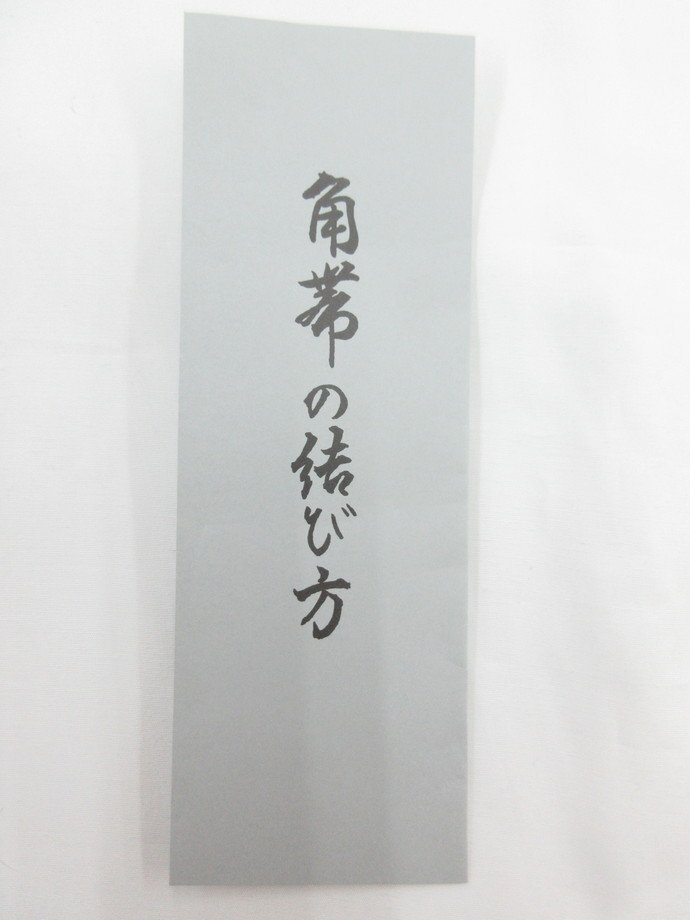 角帯の結び方